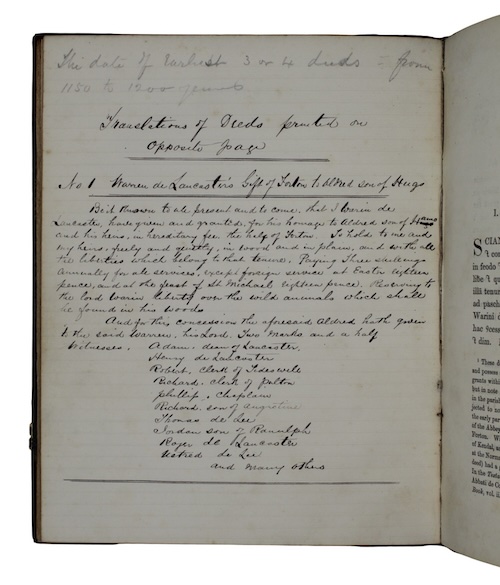 The date of Earliest 3 or 4 deeds - from
1150 to 1200 years
Translations of Deeds printed on
Opposite page
No 1 Warren de Lancaster's Gift of Forton to Aldred son of Hugo
Be it Known to all present and to come, that I Warin de
Lancaster, have given and granted, for his homage to Aldred son of Hugo
and his heirs, in hereditary fee the half of Forton. To hold to me and
my heirs, freely and quietly, in wood and in plain, and with all
the liberties which belong to that tenure. Paying Three shillings
annually for all services, except foreign service at Easter eighteen
pence, and at the feast of St Michael eighteen pence. Reserving to
the lord Warin liberty over the wild animals which shall
be found in his woods
And for this concession the aforesaid Aldred hath given
to the said Warren, his Lord. Two Marks and a half
Witnesses. Adam. dean of Lancaster,
Henry de Lancaster
Robert. Clerk of Tideswell
Richard. clerk of
Phillip. Chaplain
Richard. son of
Thomas de Lee
Jordan son of Ranulph
Roger de Lancaster
Uctred de Lee
and many others
1.
SCIAN
't con
in feodo
libe 't qu
illi tenur
ad pasch
Warini d
hac 9cess
't dim.
1 These d
and posses
grants within
but in note
in the parish
jected to a
the early per
of the Abbey
Forton. W
of Kendal, a
at the Norma
feed) had a g
In the Testa
Abbati de Co
Book, vol. ii